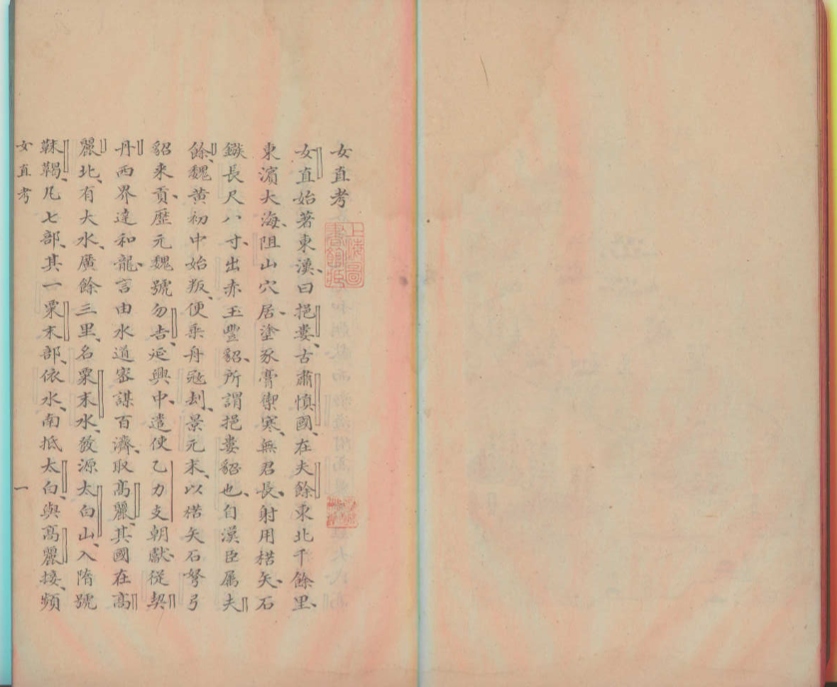 女直考
女直始著東漢曰挹婁古肅慎國在夫餘東北千餘里
東濱大海阻山穴居塗豕膏禦寒無君長射用楛矢石
鏃長尺八寸出赤玉豐貂所謂挹婁貂也自漢臣屬夫
餘魏黃初中始叛便乘舟寇刦景元末以楛矢石弩弓
貂來貢歷元魏號勿吉延興中遣使乙力支朝獻從契
丹西界達和龍言由水道密謀百濟取高麗其國在高
麗北有大水廣餘三里名粟末水發源太白山入隋號
靺鞨凡七部其一粟末部依水南抵太白與高麗接頻
女直考 一
上海圖書館藏